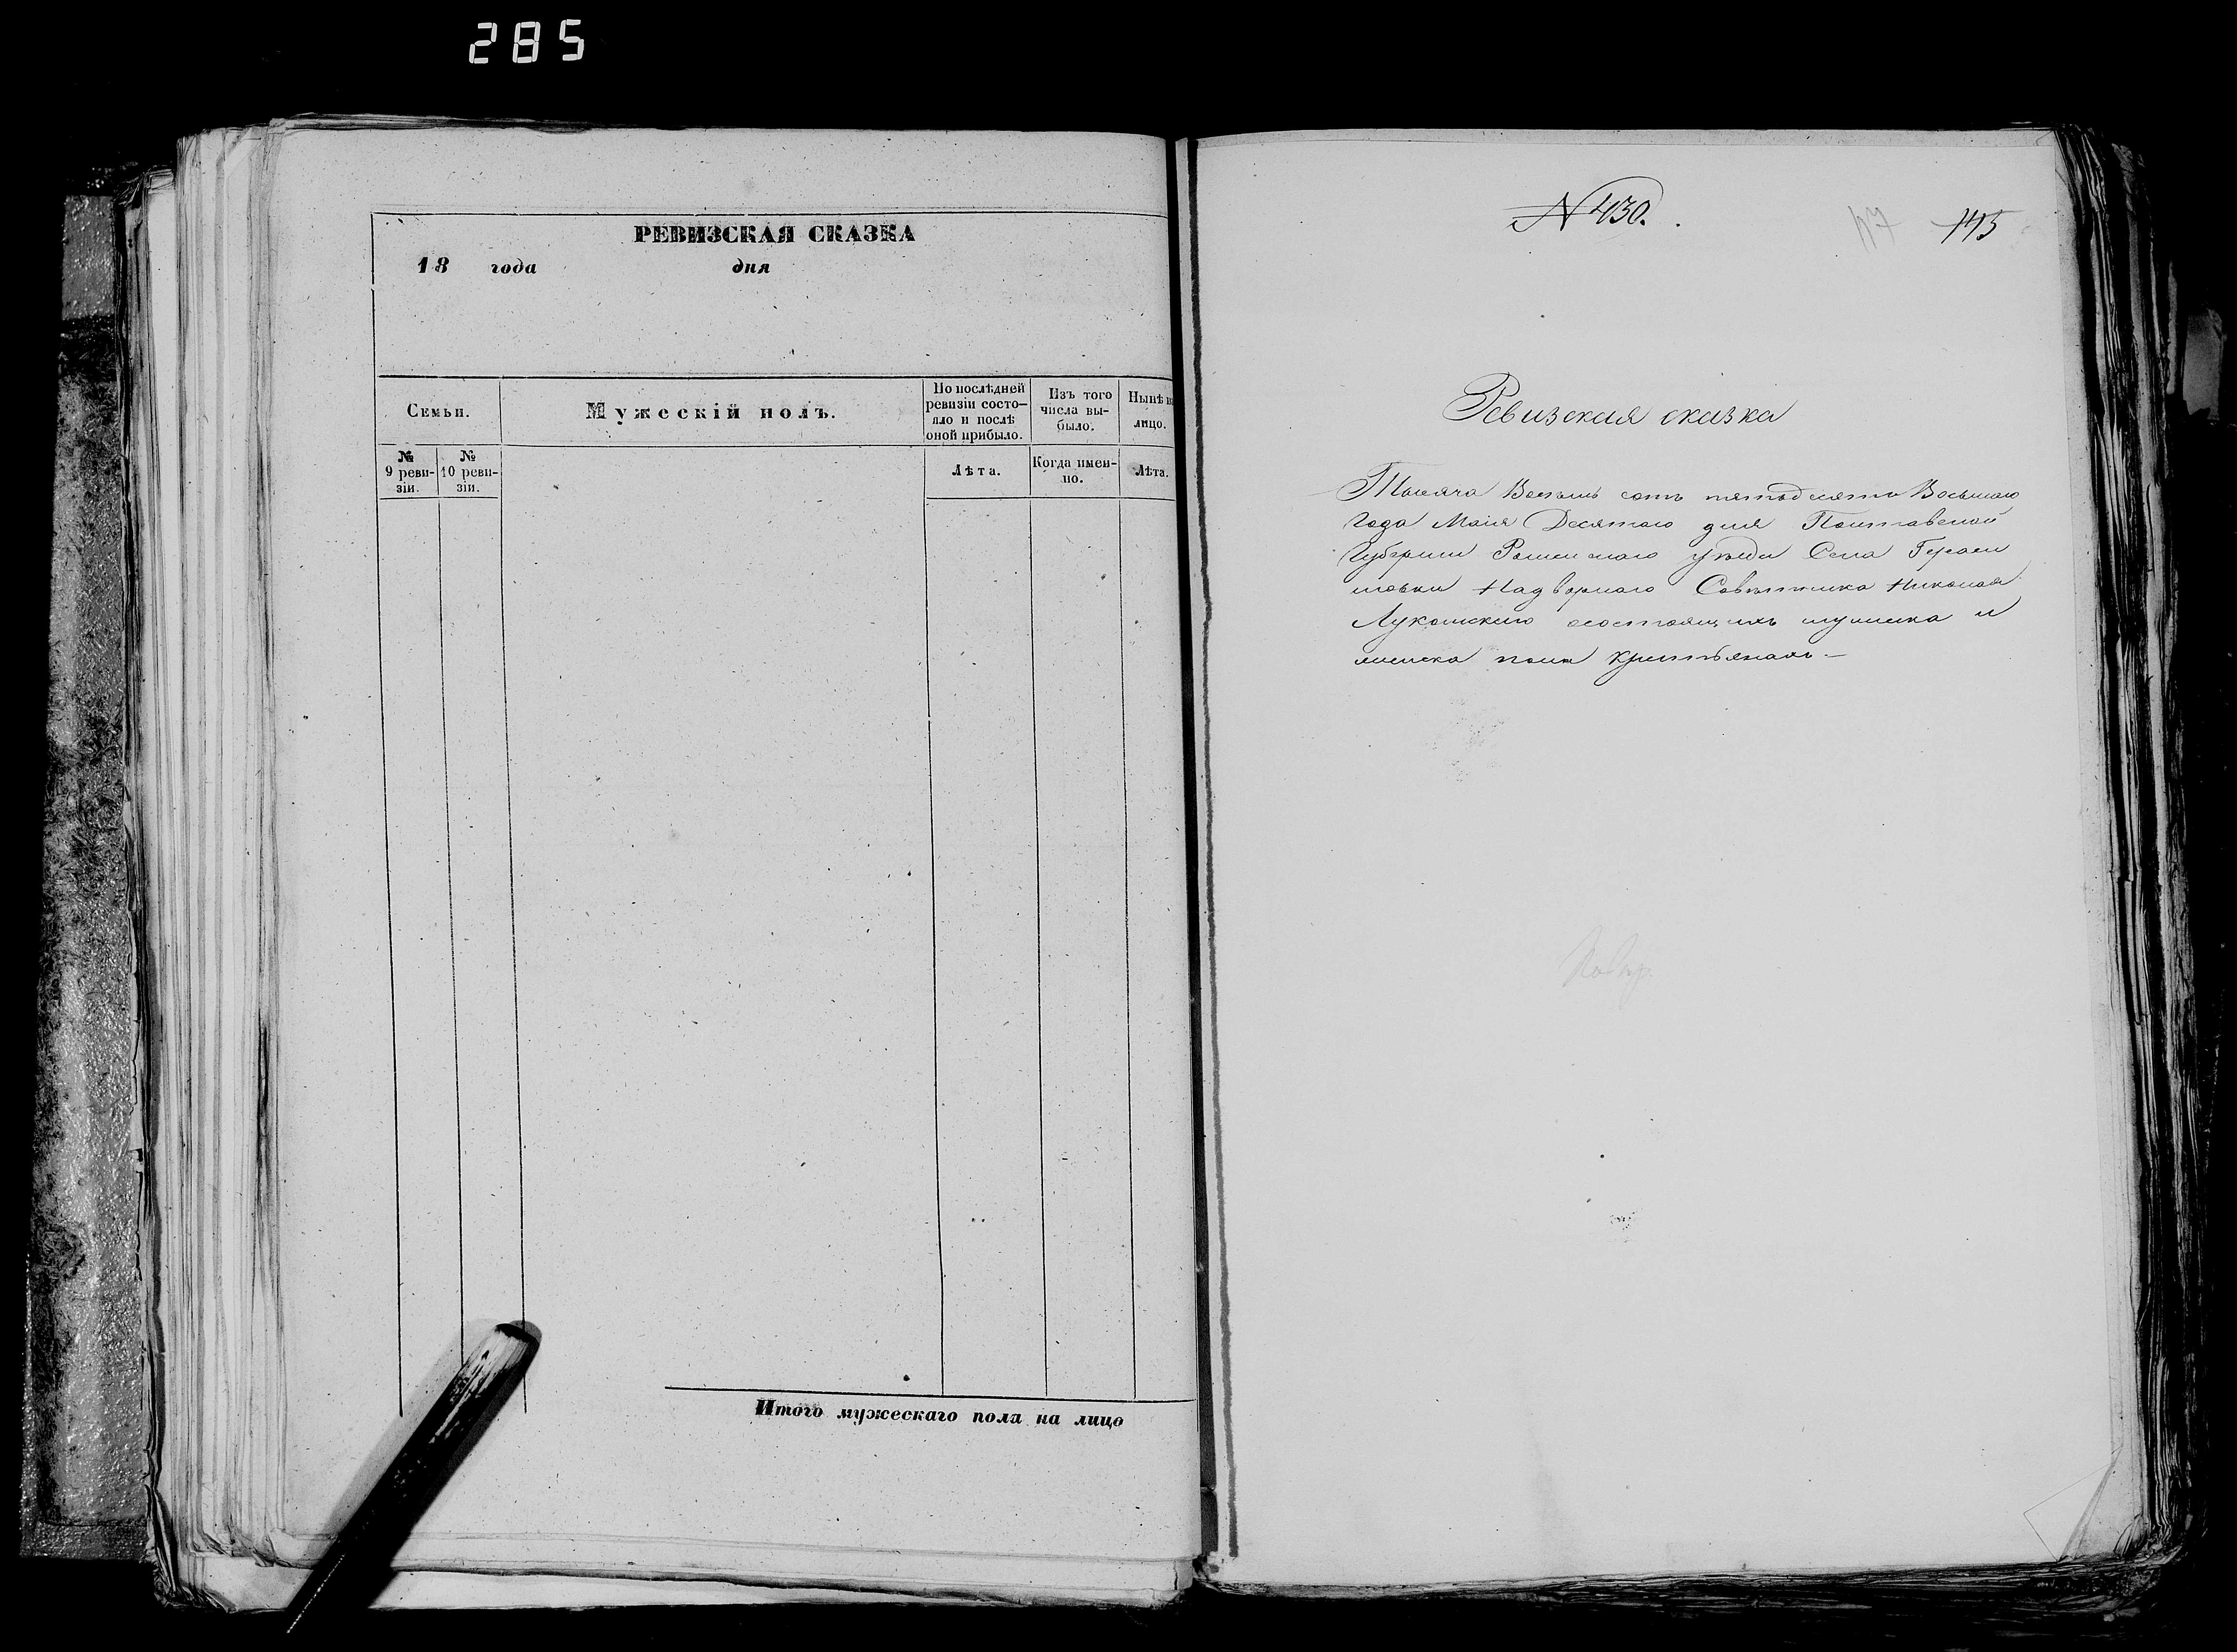 285
РЕВИЗСКАЯ СКАЗКА
18 года дня
Семьи.
Мужескій полъ.
По послѣдней
ревизіи состо-
яло и послѣ
оной прибыло.
Изъ того
числа вы-
было.
Нынѣ на
лицо.
№
9 реви-
зіи.
№
10 реви-
зіи.
Лѣта.
Когда имен-
но.
Лѣта.
Итого мужескаго пола на лицо
N 430.
117 115
Ревизская сказка
Тысяча Восемь сотъ пятьдесятъ Восьмаго
Года Маія Десятаго дня Полтавской
Губерніи Роменскаго уѣзда Села Гераси
мовки Надворнаго Совѣтника Николая
Лукомскаго состоящихъ мужска и
женска пола крестьянахъ —